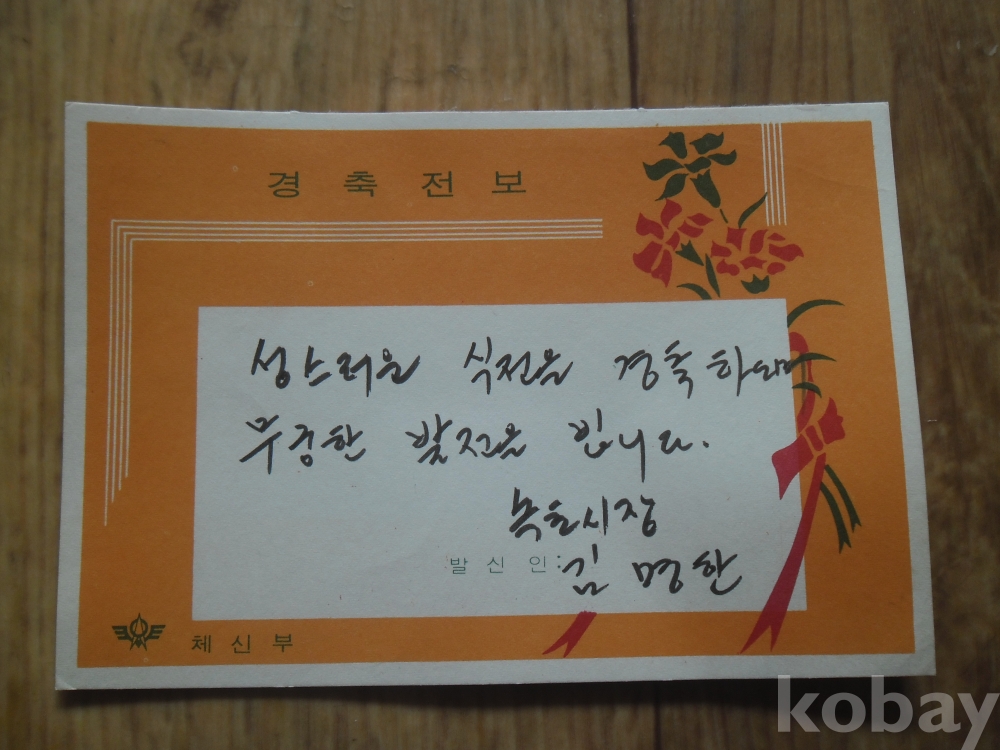 경축전보
성스러운 식전을 경축하오며
무궁한 발전을 빕니다.
시장
발신인: 김명한
체신부
kobay